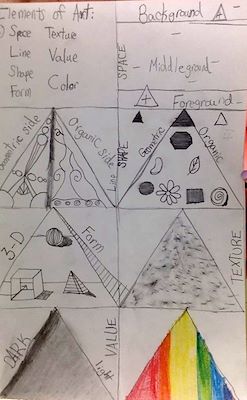 Elements of Art:
Space Texture
Line Value
Shape Color
Form
Background
SPACE
Middleground
Foreground
Geometric side
Organic side
Line
SPACE
Geometric
Organic
3-D
Form
TEXTURE
VALUE
DARK
light